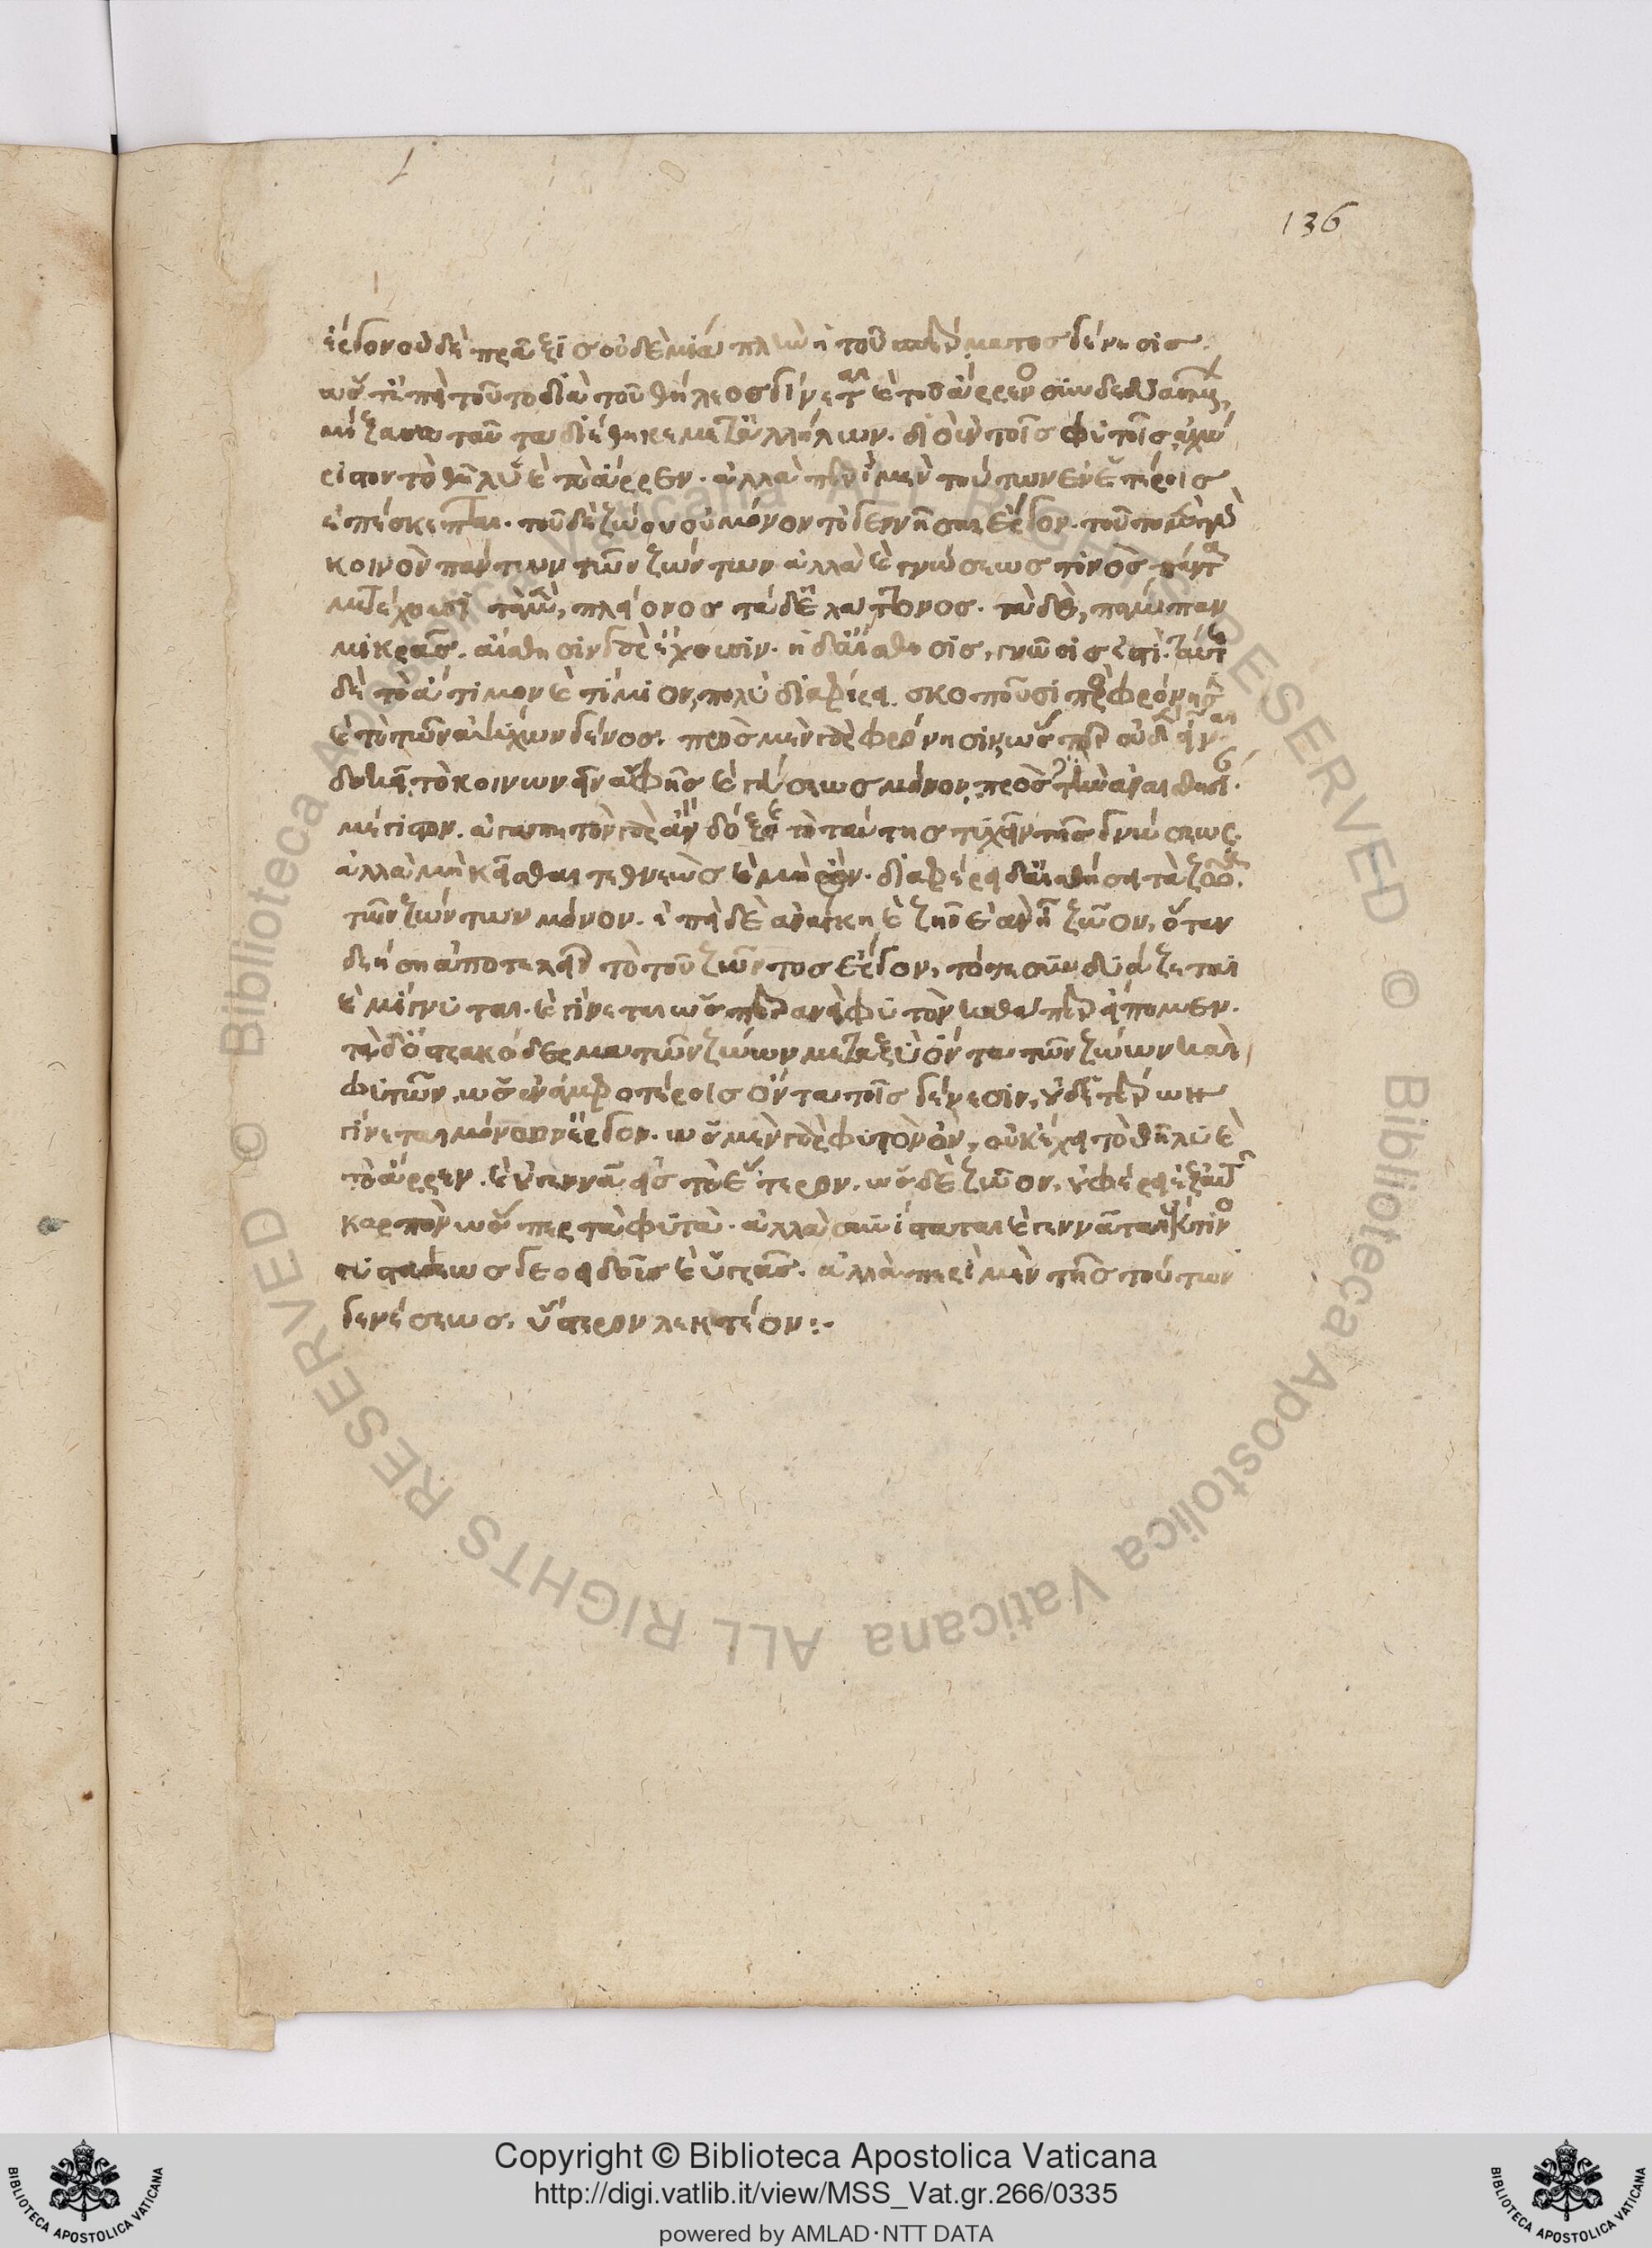 136
ἔργον οὐδὲ πρᾶξις οὐδεμία πλὴν ἡ τοῦ σπέρματος γένεσις.
ὥστ' ἐπεὶ τοῦτο διὰ τοῦ θήλεος γίνεται καὶ τοῦ ἄρρενος συνδεδυασμένων,
μίξασα ταῦτα διέθηκε μετ' ἀλλήλων. διὸ ἐν τοῖς φυτοῖς ἀχώ
ριστον τὸ θῆλυ καὶ τὸ ἄρρεν. ἀλλὰ περὶ μὲν τούτων ἐν ἑτέροις
ἐπέσκεπται. τοῦ δὲ ζώου οὐ μόνον τὸ γεννῆσαι ἔργον. τοῦτο μὲν γὰρ
κοινὸν πάντων τῶν ζώντων ἀλλὰ καὶ γνώσεως τινὸς πάντα
μετέχουσι τὰ μὲν, πλείονος τὰ δ' ἐλάττονος. τὰ δὲ, πάμπαν
μικρᾶς. αἴσθησιν γὰρ ἔχουσιν. ἡ δ' αἴσθησις, γνῶσις τις. ταύτης
δὲ τὸ ἄτιμον καὶ τίμιον, πολὺ διαφέρει σκοποῦσι πρὸς φρόνησιν
καὶ τὸ τῶν ἀψύχων γένος. πρὸς μὲν γὰρ φρόνησιν, ὥσπερ οὐδὲν εἶναι
δοκεῖ τὸ κοινωνεῖν ἁφῆς καὶ γεύσεως μόνον, πρὸς δὲ ἀναισθησίαν
βέλτιστον. ἀγαπητὸν γὰρ ἂν δόξειε τὸ ταύτης τυχεῖν τῆς γνώσεως.
ἀλλὰ μὴ κεῖσθαι τεθνεὼς καὶ μὴ ὄν. διαφέρει δ' αἰσθήσει τὰ ζῶα
τῶν ζώντων μόνον. ἐπεὶ δὲ ἀνάγκη καὶ ζῆν ἐὰν ᾖ ζῶον, ὅταν
δεήσῃ ἀποτελεῖν τὸ τοῦ ζῶντος ἔργον, τότε συνδυάζεται
καὶ μίγνυται. καὶ γίνεται ὥσπερ ἂν εἰ φυτὸν καθάπερ εἴπομεν.
τὰ δ' ὀστρακόδερμα τῶν ζώων μεταξὺ ὄντα τῶν ζώων καὶ
φυτῶν, ὡς ἐν ἀμφοτέροις ὄντα τοῖς γένεσιν, οὐδετέρων
γίνεται μόνον ἔργον. ὡς μὲν γὰρ φυτὸν ὂν, οὐκ ἔχει τὸ θῆλυ καὶ
τὸ ἄρρεν. καὶ οὐ γεννᾶ εἰς τὸ ἕτερον. ὡς δὲ ζῶον, οὐ φέρει ἐξ αὑτοῦ
καρπὸν ὥσπερ τὰ φυτὰ. ἀλλὰ συνίσταται καὶ γεννᾶται ἔκ τινος
συστάσεως γεοειδοῦς καὶ ὑγρᾶς. ἀλλὰ περὶ μὲν τῆς τούτων
γενέσεως. ὕστερον λεκτέον:-
Copyright © Biblioteca Apostolica Vaticana
http://digi.vatlib.it/view/MSS_Vat.gr.266/0335
powered by AMLAD·NTT DATA